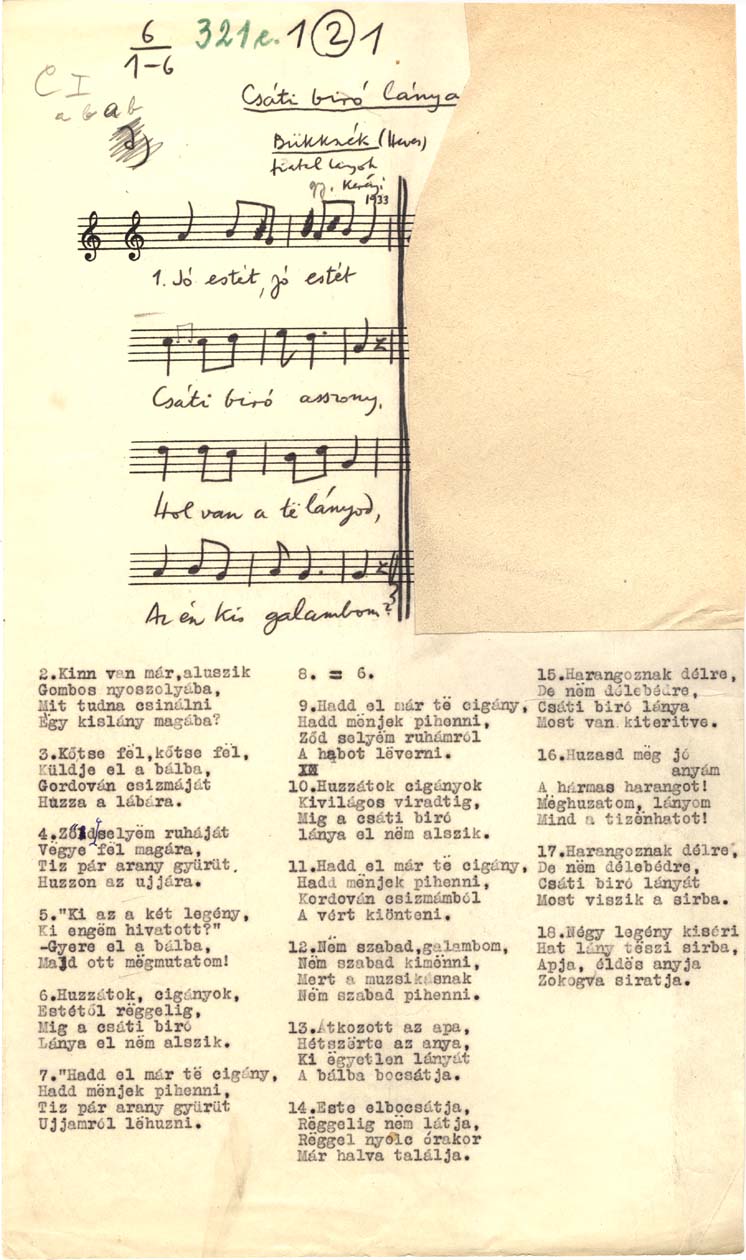 6
1-6
321e. 1 2 1
C I
a b a b
Csáti biró lánya
Bükkszék (Heves)
fiatal lányok
gy. Kerényi
1933
1. Jó estét, jó estét
Csáti biró asszony,
Hol van a të lányod,
Az én kis galambom?
2.Kinn van már,aluszik
Gombos nyoszolyába,
Mit tudna csinálni
Egy kislány magába?
3.Kőtse fël,kőtse fël,
Küldje el a bálba,
Gordován csizmáját
Huzza a lábára.
4.Ződ selyëm ruháját
Vëgye fël magára,
Tiz pár arany gyürüt,
Huzzon az ujjára.
5."Ki az a két legény,
Ki engëm hivatott?"
-Gyere el a bálba,
Majd ott mëgmutatom!
6.Huzzátok, cigányok,
Estétől rëggelig,
Mig a csáti biró
Lánya el nëm alszik.
7."Hadd el már të cigány,
Hadd mënjek pihenni,
Tiz pár arany gyürüt
Ujjamról lëhuzni.
8. = 6.
9.Hadd el már të cigány,
Hadd mënjek pihenni,
Ződ selyëm ruhámról
A habot lëverni.
10.Huzzátok cigányok
Kivilágos viradtig,
Mig a csáti biró
lánya el nëm alszik.
11.Hadd el már të cigány,
Hadd mënjek pihenni,
Kordován csizmámból
A vért kiönteni.
12.Nëm szabad,galambom,
Nëm szabad kimënni,
Mert a muzsikásnak
Nëm szabad pihenni.
13.Átkozott az apa,
Hétszërte az anya,
Ki ëgyetlen lányát
A bálba bocsátja.
14.Este elbocsátja,
Rëggelig nëm látja,
Rëggel nyolc órakor
Már halva találja.
15.Harangoznak délre,
De nëm délebédre,
Csáti biró lánya
Most van kiteritve.
16.Huzasd mëg jó
anyám
A hármas harangot!
Mëghuzatom, lányom
Mind a tizënhatot!
17.Harangoznak délre,
De nëm délebédre,
Csáti biró lányát
Most viszik a sirba.
18.Négy legény kiséri
Hat lány tëszi sirba,
Apja, éldës anyja
Zokogva siratja.